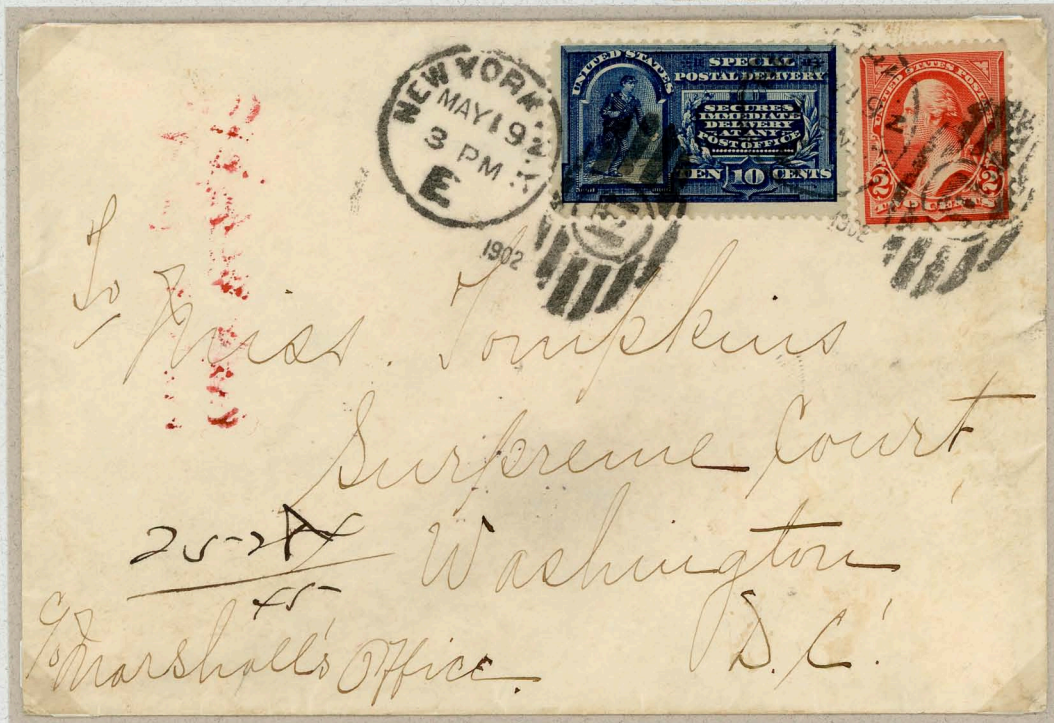 NEW YORK
MAY 19
3 PM
E
1902
UNITED STATES
SPECIAL
POSTAL DELIVERY
SECURES
IMMEDIATE
DELIVERY
AT ANY
POST OFFICE
TEN 10 CENTS
UNITED STATES POSTAGE
2 2
TWO CENTS
1902
To
Miss. Tompkins
Supreme Court
Washington
D.C.
45
c/o Marshall's Office.